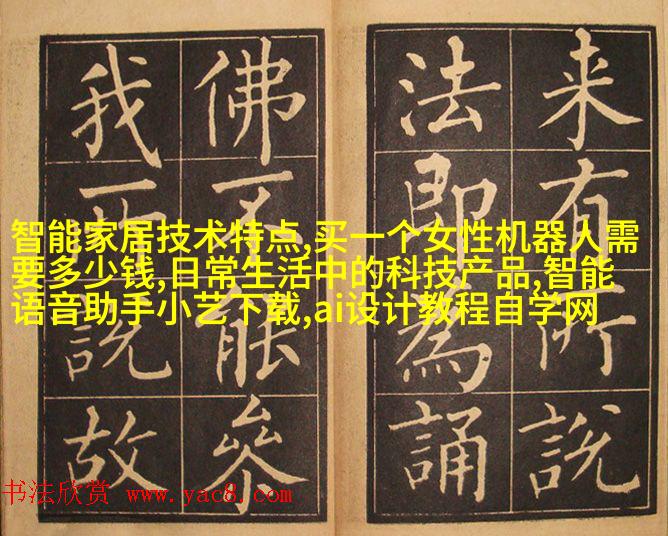 来有所說
法即為誦
佛不能叅
我所說故
智能家居技术特点,买一个女性机器人需
要多少钱,日常生活中的科技产品,智能
语音助手小艺下载,ai设计教程自学网
书法欣赏 www.yac8.com